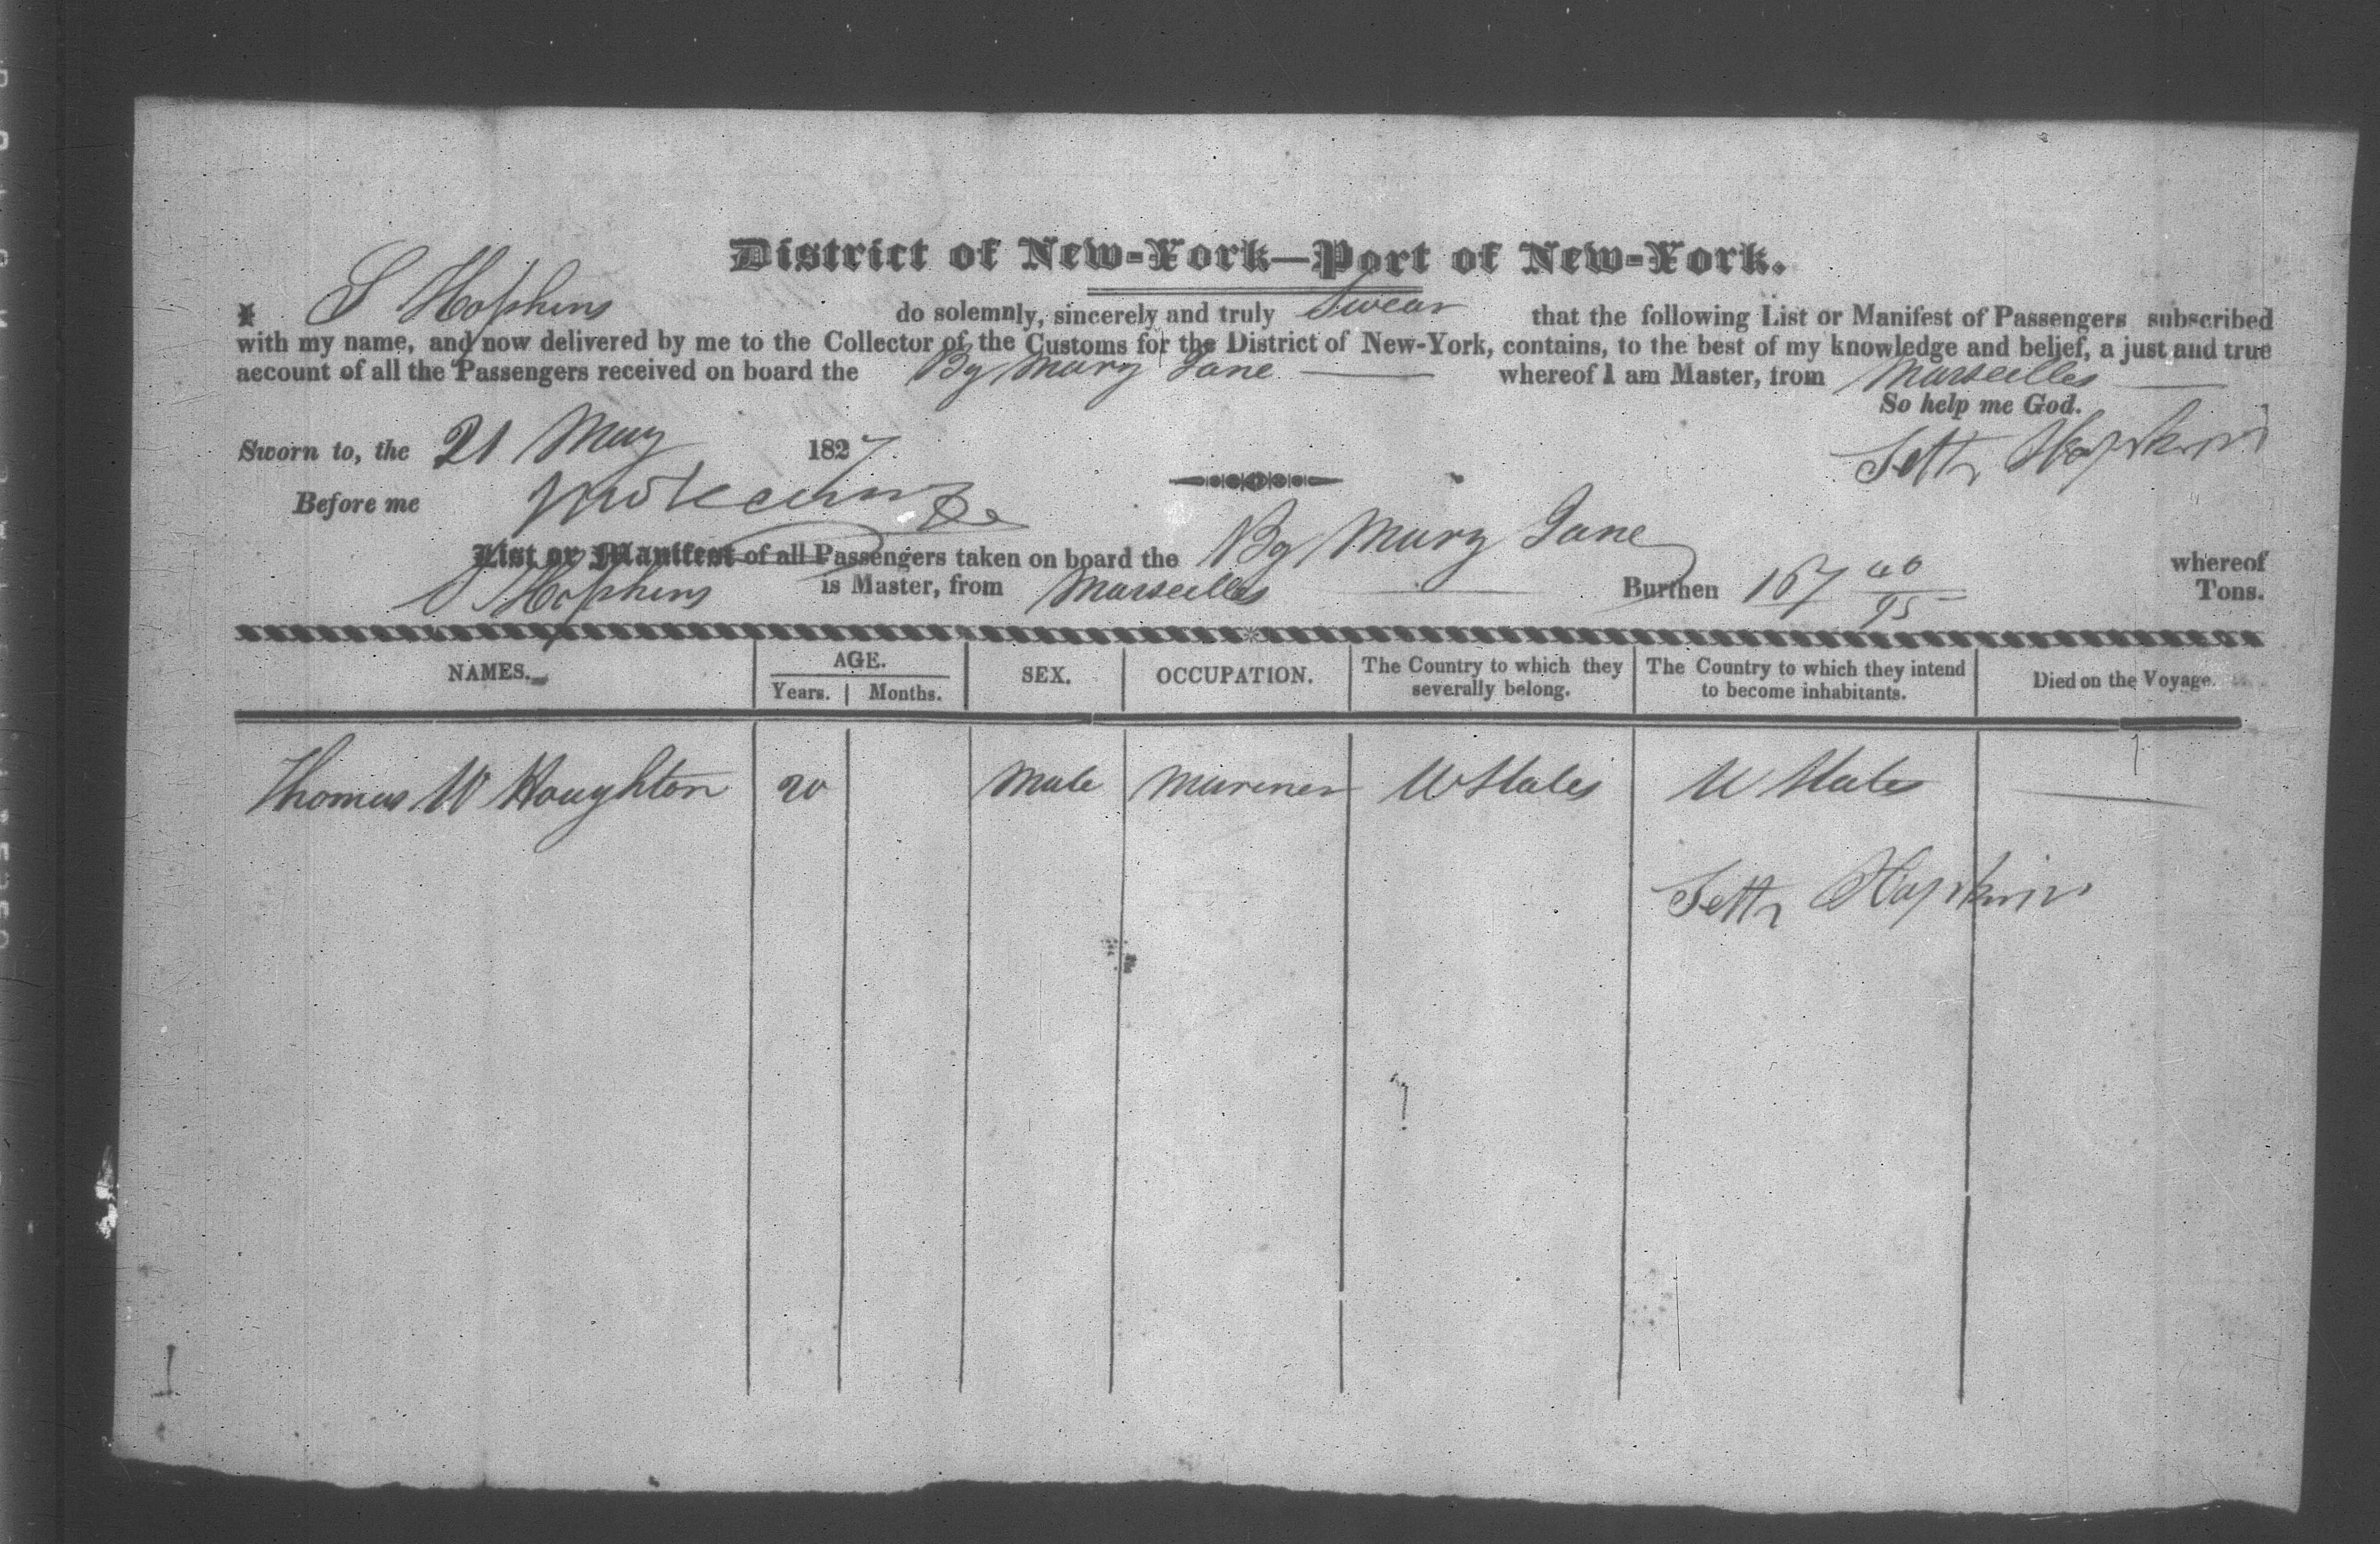 District of New-York—Port of New-York.
I S Hopkins do solemnly, sincerely and truly Swear that the following List or Manifest of Passengers subscribed
with my name, and now delivered by me to the Collector of the Customs for the District of New-York, contains, to the best of my knowledge and belief, a just and true
account of all the Passengers received on board the Bg Mary Jane whereof I am Master, from Marseilles
So help me God.
Sworn to, the 21 May 1827
Seth Hopkins
Before me
List or Manifest of all Passengers taken on board the Bg Mary Jane whereof
S Hopkins is Master, from Marseilles Burthen 167 40/95 Tons.
NAMES. AGE. Years. Months. SEX. OCCUPATION. The Country to which they severally belong. The Country to which they intend to become inhabitants. Died on the Voyage.
Thomas W Houghton 20 Male Mariner U States U States —
Seth Hopkins